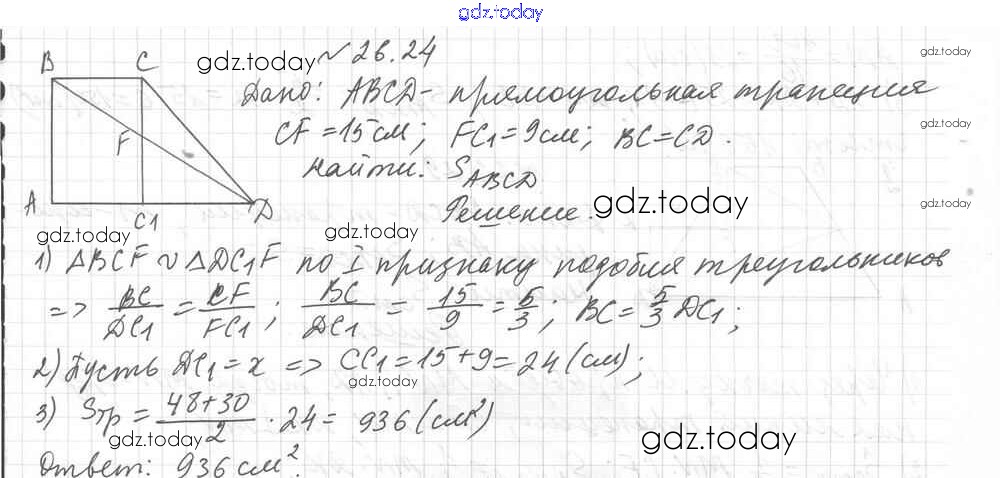 gdz.today
№ 26.24
gdz.today
gdz.today
B C
Дано: ABCD - прямоугольная трапеция
CF = 15 см; FC1 = 9 см; BC = CD.
gdz.today
F
Найти: S_ABCD
A C1 D
Решение.
gdz.today
gdz.today
gdz.today
gdz.today
1) ΔBCF ∾ ΔDC1F по I признаку подобия треугольников
=> BC/DC1 = CF/FC1; BC/DC1 = 15/9 = 5/3; BC = 5/3 DC1;
2) Пусть DC1 = x => CC1 = 15 + 9 = 24 (см);
gdz.today
3) Sтр = (48+30)/2 · 24 = 936 (см²)
gdz.today
gdz.today
Ответ: 936 см².